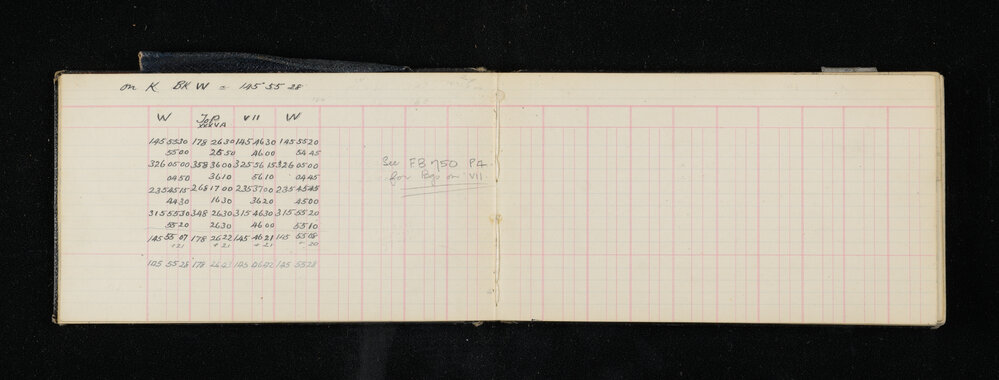 on K BK W = 145 55 28
W Top VII W
XXXVA
145 55 30 178 26 30 145 46 30 145 55 20
55 00 25 50 46 00 54 45
326 05 00 358 36 00 325 56 15 326 05 00
04 50 36 10 56 10 04 45
235 45 15 268 17 00 235 37 00 235 45 45
44 30 16 30 36 20 45 00
315 55 30 348 26 30 315 46 30 315 55 20
55 20 26 30 46 00 55 10
145 55 07 178 26 22 145 46 21 145 55 08
+21 +21 +21 + 20
145 55 28 178 26 43 145 46 42 145 55 28
See FB 750 P4
for Bgs on VII